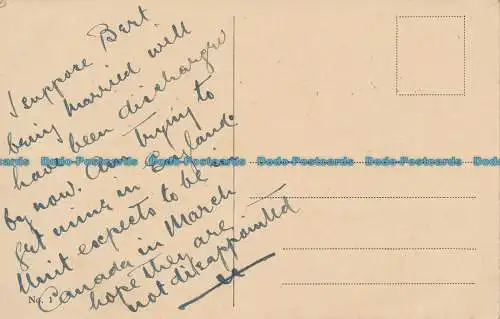 I suppose Bert
being married will
have been discharged
by now. Am Trying to
get mine in England.
Unit expects to be in
Canada in March
hope they are
not disappointed
No. 1
Dodo-Postcards Dodo-Postcards Dodo-Postcards Dodo-Postcards Dodo-Postcards Dodo-Postcards